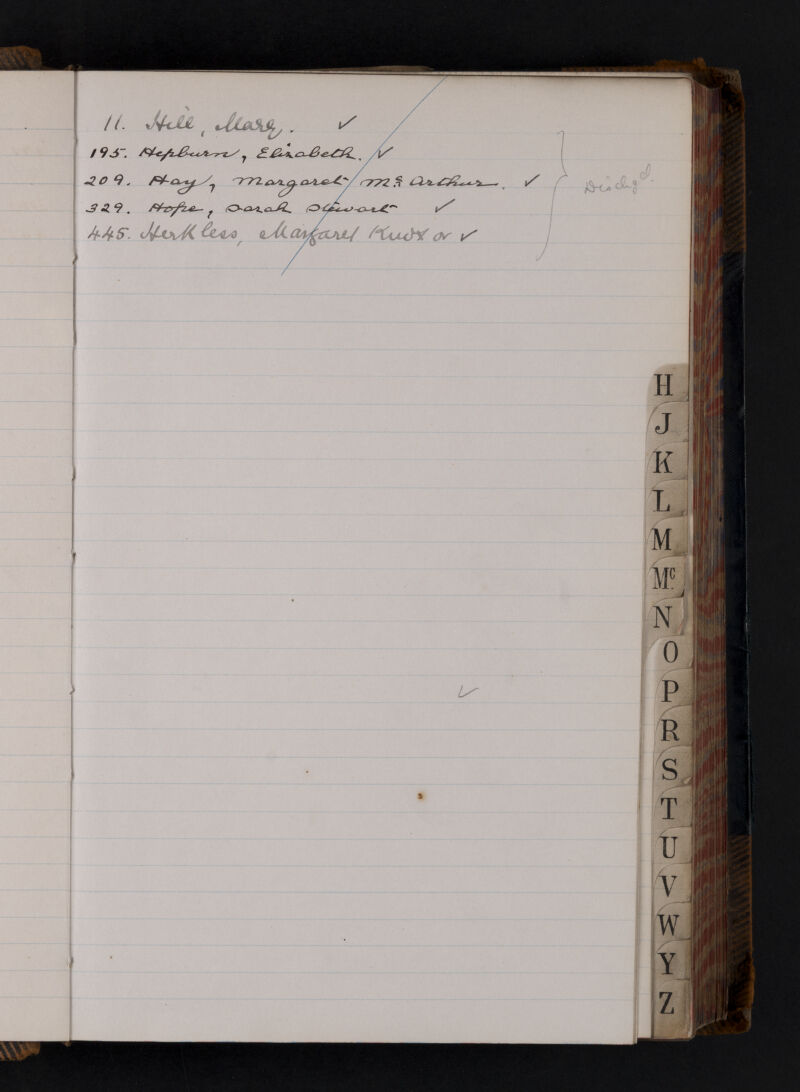 11. Hill, Mary. ✓
195. Hepburn, Elizabeth. ✓
209. Hay, Margaret Mc Arthur. ✓
329. Hope, Sarah Stewart ✓
445. Herkless, Margaret Knox or ✓
Dischgd.
✓
H
J
K
L
M
Mc.
N
O
P
R
S
T
U
V
W
Y
Z